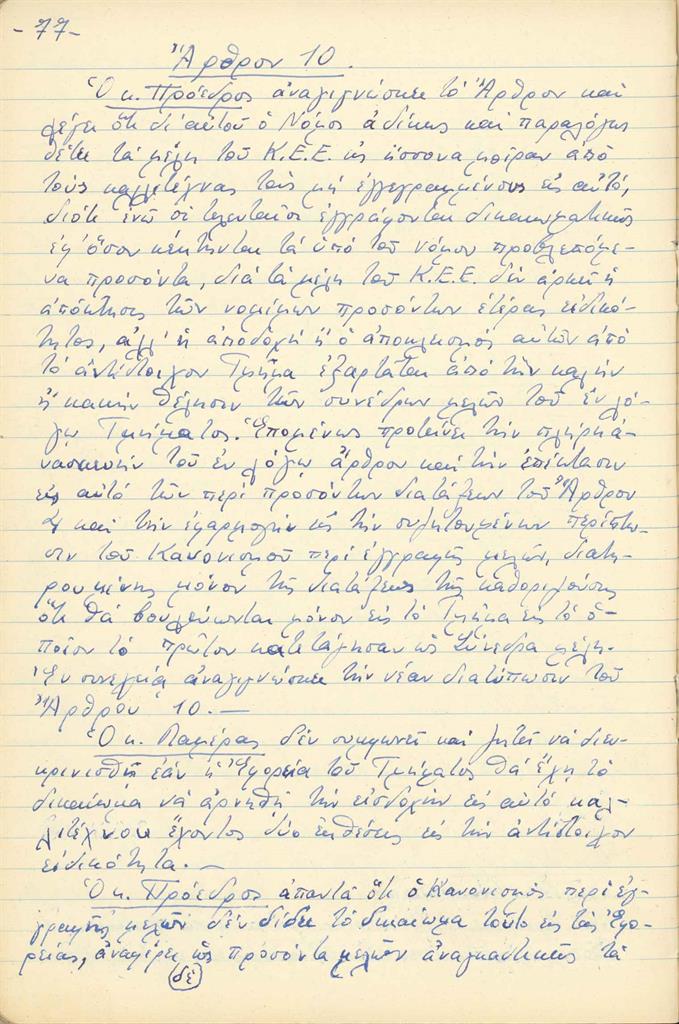 -77-
Ἄρθρον 10.
Ὁ κ. Πρόεδρος ἀναγιγνώσκει τό Ἄρθρον καί
λέγει ὅτι δι' αὐτοῦ ὁ Νόμος ἀδίκως καί παραλόγως
θέτει τά μέλη τοῦ Κ.Ε.Ε. εἰς ἥσσονα μοῖραν ἀπό
τούς καλλιτέχνας τούς μή ἐγγεγραμμένους εἰς αὐτό,
διότι ἐνῶ οἱ τελευταῖοι ἐγγράφονται δικαιωματικῶς
ἐφ' ὅσον κέκτηνται τά ὑπό τοῦ νόμου προβλεπόμε-
να προσόντα, διά τά μέλη τοῦ Κ.Ε.Ε. δέν ἀρκεῖ ἡ
ἀπόκτησις τῶν νομίμων προσόντων ἑτέρας εἰδικό-
τητος, ἀλλ' ἡ ἀποδοχή ἤ ὁ ἀποκλεισμός αὐτῶν ἀπό
τό ἀντίστοιχον Τμῆμα ἐξαρτᾶται ἀπό τήν καλήν
ἤ κακήν θέλησιν τῶν συνέδρων μελῶν τοῦ ἐν λό-
γῳ Τμήματος. Ἑπομένως προτείνει τήν πλήρη ἀ-
νασκευήν τοῦ ἐν λόγῳ ἄρθρου καί τήν ἐπέκτασιν
εἰς αὐτό τῶν περί προσόντων διατάξεων τοῦ Ἄρθρου
4 καί τήν ἐφαρμογήν εἰς τήν συζητουμένην περίπτω-
σιν τοῦ Κανονισμοῦ περί ἐγγραφῆς μελῶν, διατη-
ρουμένης μόνον τῆς διατάξεως τῆς καθοριζούσης
ὅτι θά βουλεύωνται μόνον εἰς τό Τμῆμα εἰς τό ὁ-
ποῖον τό πρῶτον κατετάγησαν ὡς Σύνεδρα μέλη.
Ἐν συνεχείᾳ ἀναγιγνώσκει τήν νέαν διατύπωσιν τοῦ
Ἄρθρου 10.—
Ὁ κ. Παμέρας δέν συμφωνεῖ καί ζητεῖ νά διευ-
κρινισθῇ ἐάν ἡ Ἐφορεία τοῦ Τμήματος θά ἔχῃ τό
δικαίωμα νά ἀρνηθῇ τήν εἰσδοχήν εἰς αὐτό καλ-
λιτέχνου ἔχοντος δύο ἐκθέσεις εἰς τήν ἀντίστοιχον
εἰδικότητα.—
Ὁ κ. Πρόεδρος ἀπαντᾷ ὅτι ὁ Κανονισμός περί ἐγ-
γραφῆς μελῶν δέν δίδει τό δικαίωμα τοῦτο εἰς τάς Ἐφο-
ρείας, ἀναφέρει δέ ὡς προσόντα μελῶν ἀναγκαστικῶς τά